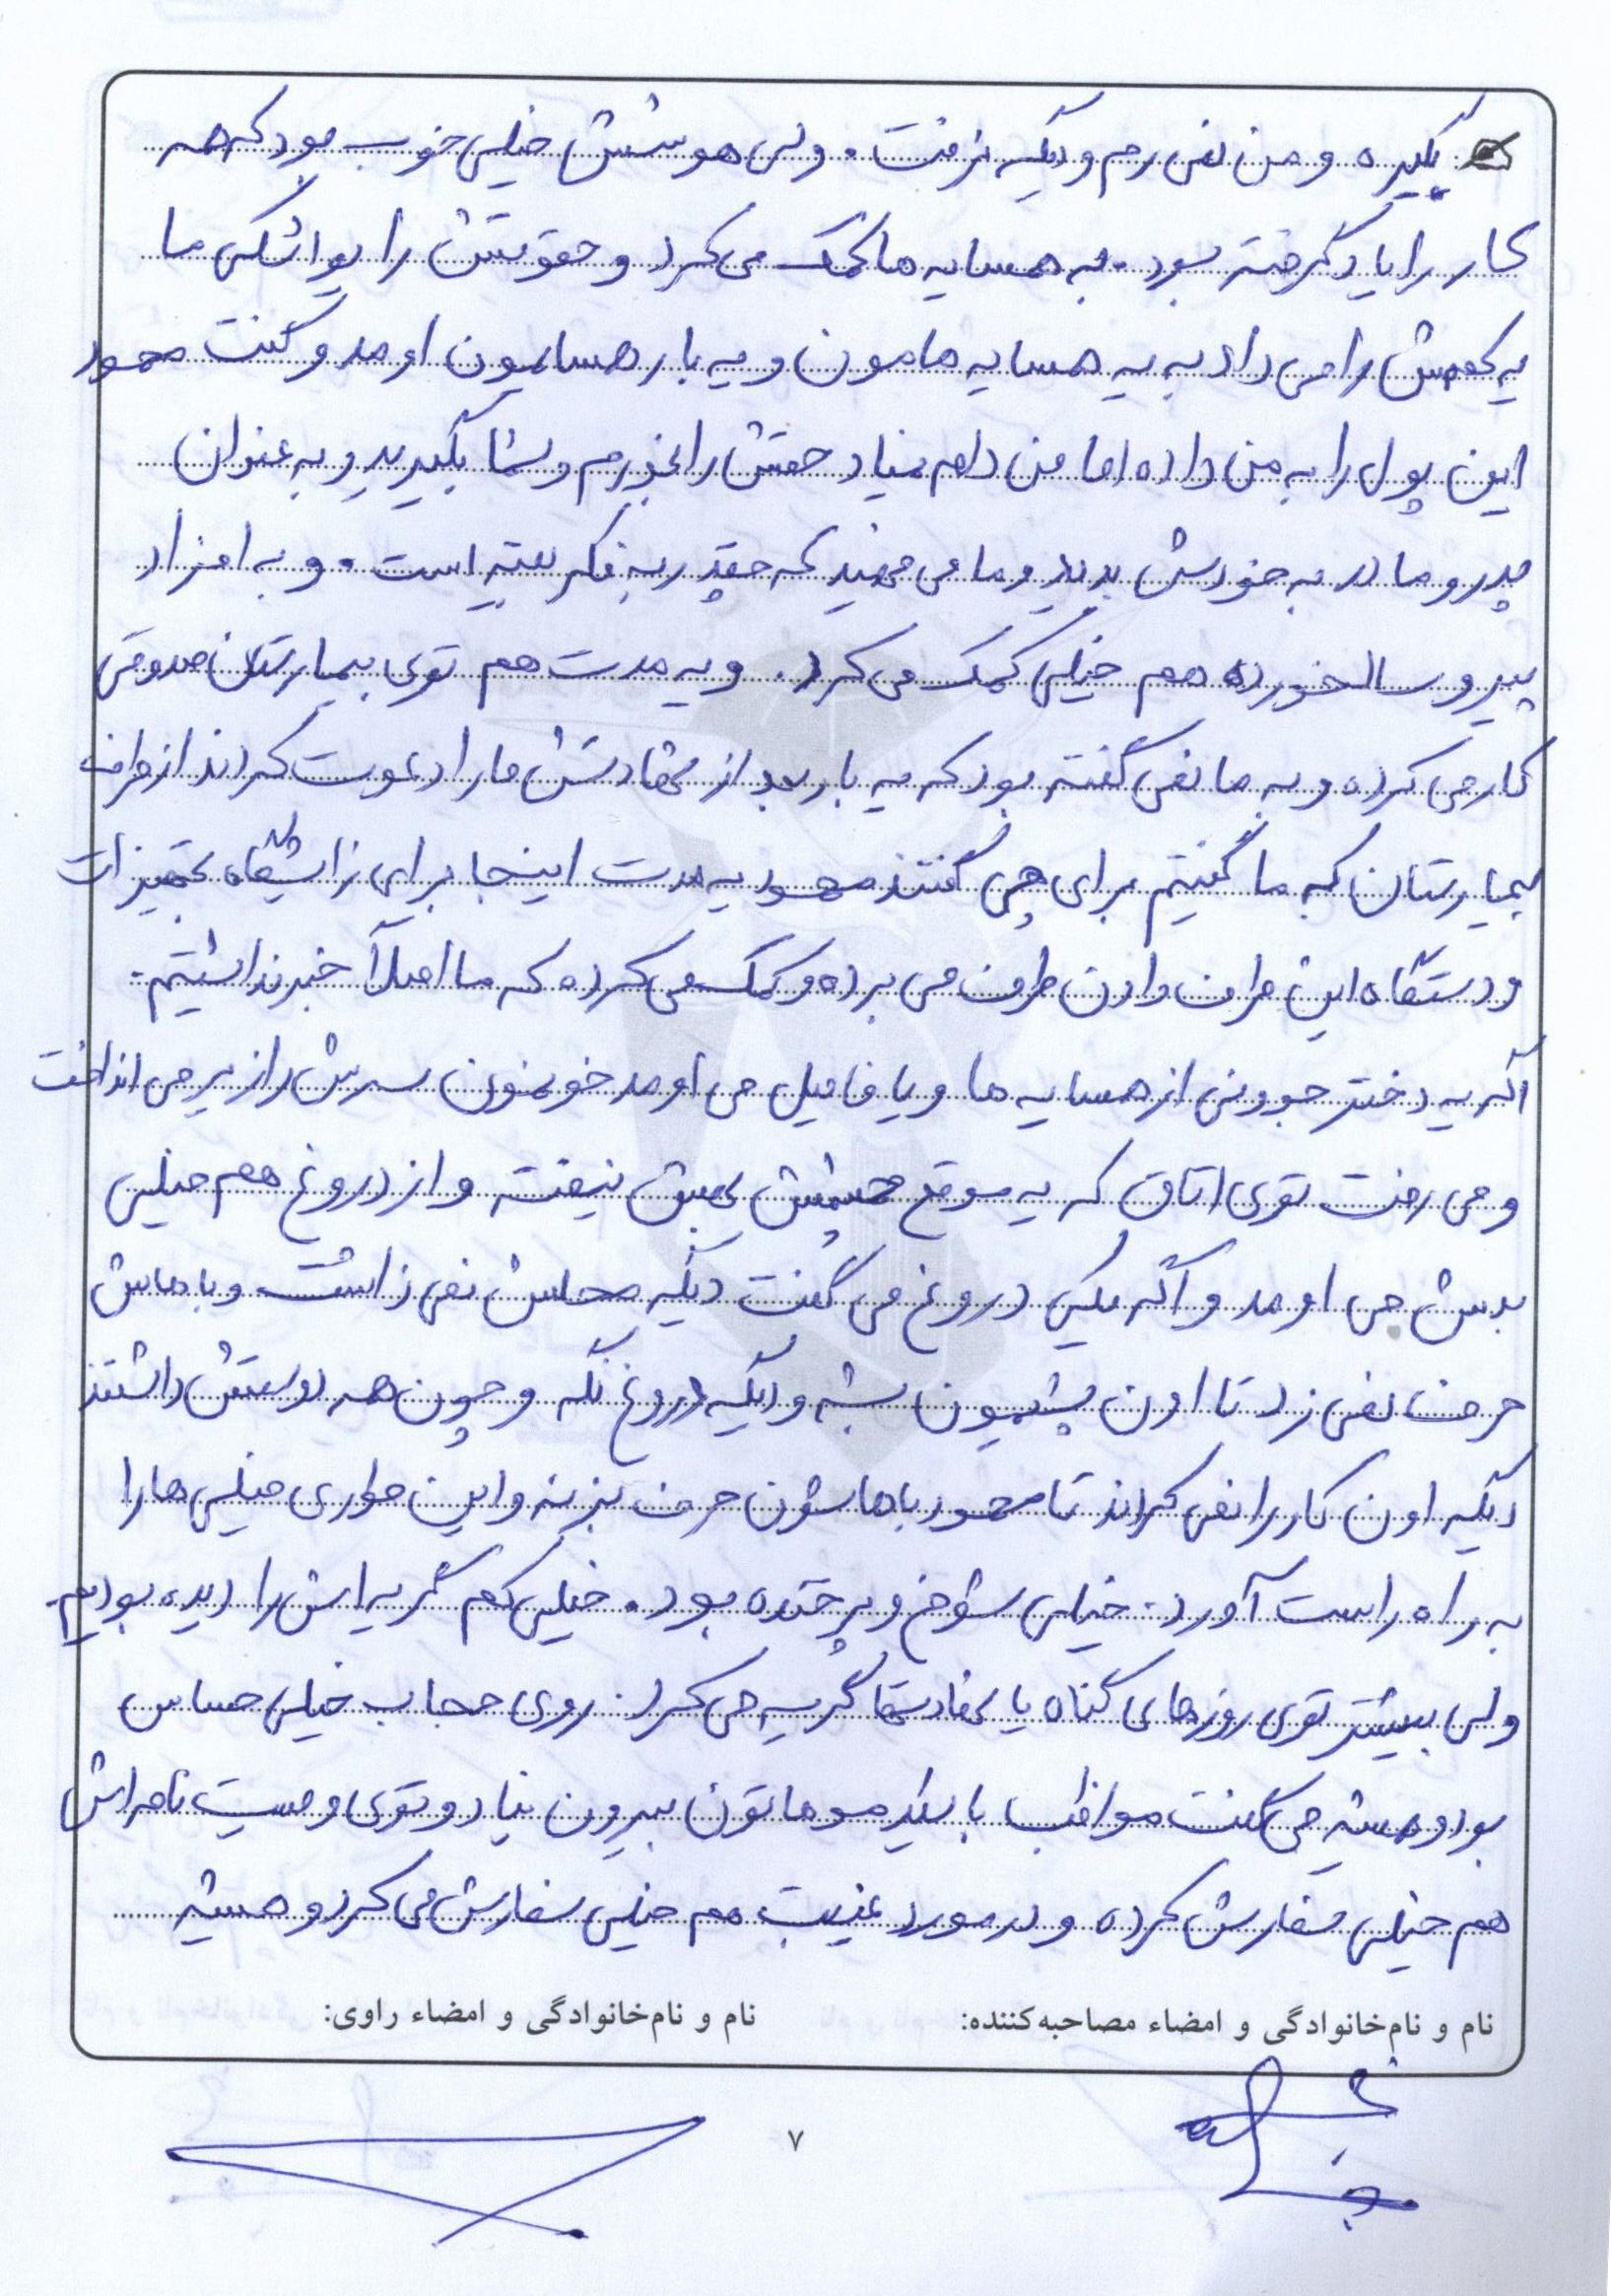 بگیره و من نمی رم و دیگه نرفت. ولی هوشش خیلی خوب بود که همه
کار را یاد گرفته بود. به همسایه ها کمک می کرد و حقوقش را یواشکی ما
یه کمیش را می داد به یه همسایه هامون و یه بار همسایمون اومد و گفت محمود
این پول را به من داده اما من دلم نمیاد حقش را بخورم و شما بگیرید و به عنوان
پدر و مادر به خودش بدید و ما می فهمیدیم که چقدر به فکر بقیه است. و به افراد
پیر و سالخورده هم خیلی کمک می کرد. و یه مدت هم توی بیمارستان صدوقی
کار می کرده و به ما نمی گفته بود که یه بار بعد از شهادتش ما را دعوت کردند از طرف
بیمارستان که ما گفتیم برای چی گفتند محمود یه مدت اینجا برای زایشگاه تجهیزات
و دستگاه این طرف و اون طرف می برده و کمک می کرده که ما اصلاً خبر نداشتیم.
اگر یه دختر جوونی از همسایه ها و یا فامیل می اومد خونمون سرش را زیر می انداخت
و می رفت توی اتاق که یه موقع چشمش بهش نیفته و از دروغ هم خیلی
بدش می اومد و اگه یکی دروغ می گفت دیگه محلش نمی زاشت و باهاش
حرف نمی زد تا اون پشیمون بشه و دیگه دروغ نگه و چون همه دوستش داشتند
دیگه اون کار را نمی کردند تا محمود باهاشون حرف بزنه و این طوری خیلی ها را
به راه راست آورد. خیلی شوخ و پرخنده بود. خیلی کم گریه اش را دیده بودیم.
ولی بیشتر توی روزهای گناه یا شهادتها گریه می کرد. روی حجاب خیلی حساس
بود و همیشه می گفت مواظب باشید موهاتون بیرون نیاد و توی وصیت نامه اش
هم خیلی سفارش کرده و در مورد غیبت هم خیلی سفارش می کرد و همیشه
نام و نام‌خانوادگی و امضاء مصاحبه‌کننده: نام و نام‌خانوادگی و امضاء راوی:
۷